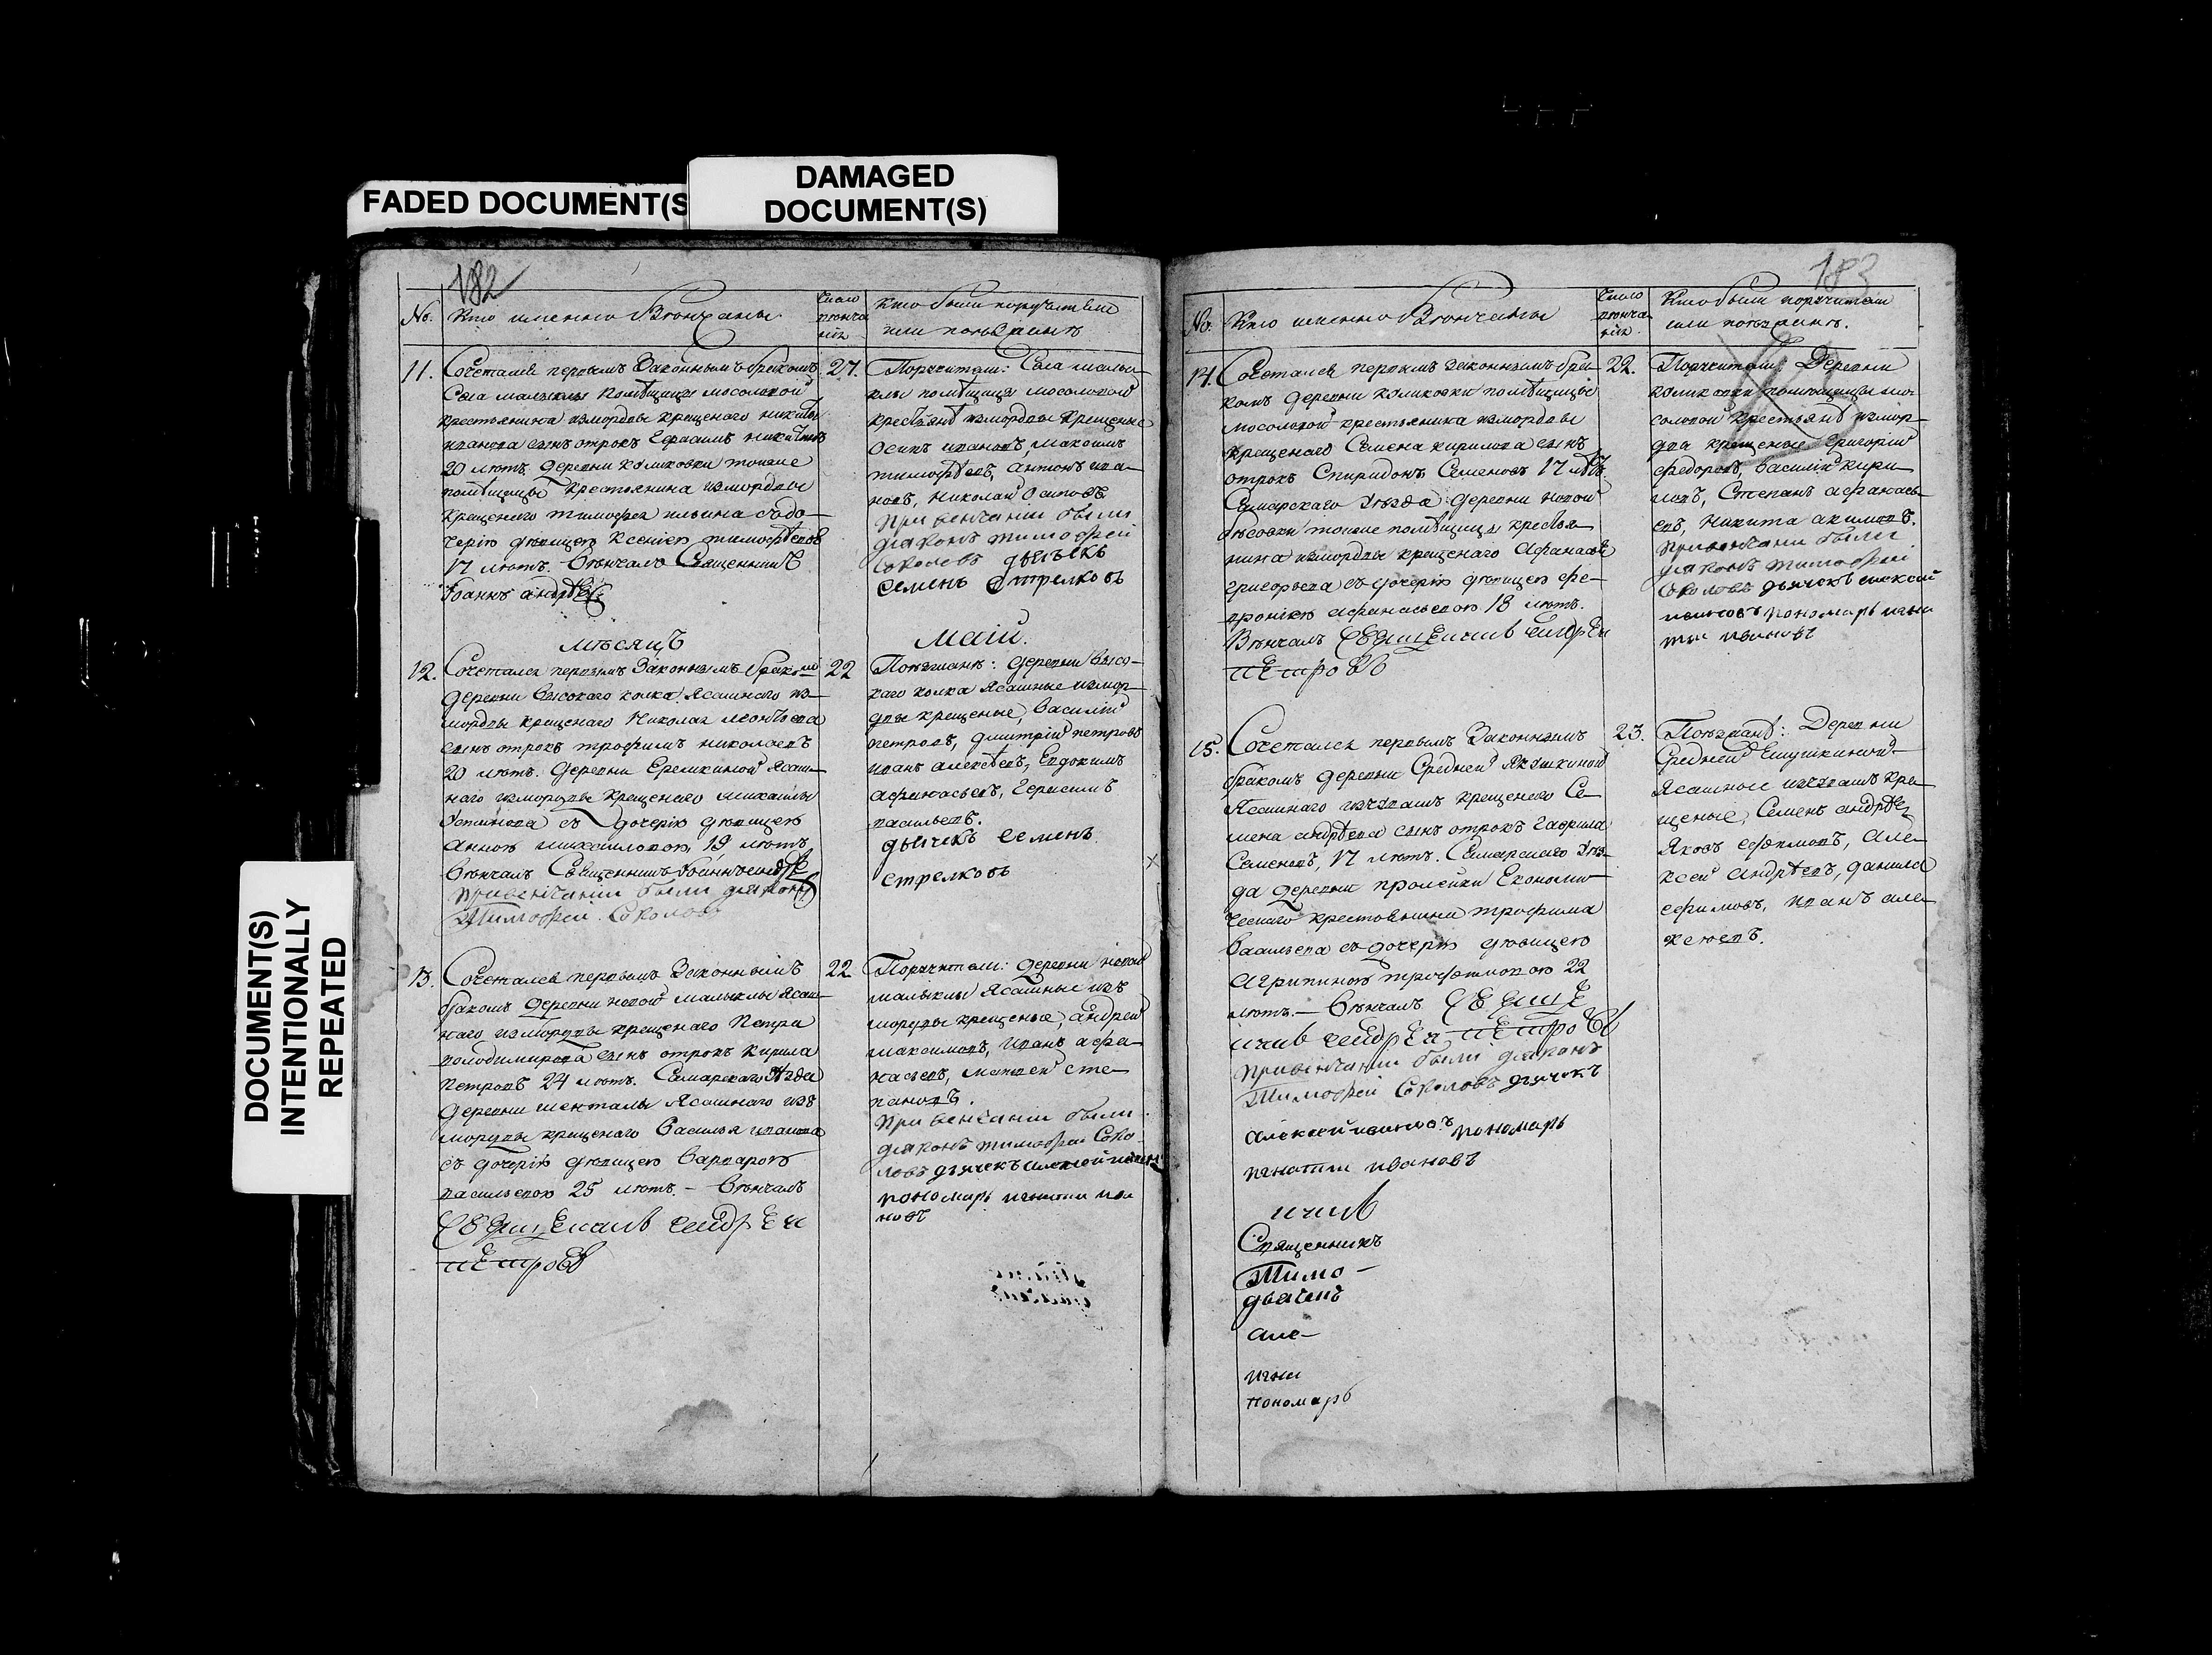 FADED DOCUMENT(S
DAMAGED
DOCUMENT(S)
DOCUMENT(S)
INTENTIONALLY
REPEATED
182
No.
Кто именно Вѣнчаны
Число
вѣнча
нія
Кто были поручители
или поѣзжанѣ
11.
Сочетался первымъ Законнымъ бракомъ
Села малыклы Помѣщицы мосоловой
крестьянина измордвы крещенаго никиты
иванова сынъ отрокъ Герасимъ никитинъ
20 лѣтъ деревни комковки тояже
помѣщицы крестьянина измордвы
крещенаго тимофея ильина сьдо—
черію дѣвицею Ксеніею тимофѣевою
17 лѣтъ. Вѣнчалъ Священникъ
Іоаннъ андрѣевъ
27.
Поручители: Села малы-
клы помѣщицы мосоловой
крестьянѣ измордвы крещеные
Осипъ ивановъ, максимъ
тимофѣевъ, антонъ ива-
новъ, николай Осиповъ
при венчании были
диаконъ тимофей
Соколовъ дьячекъ
семенъ стрелковъ
мѣсяцъ
маій.
12.
Сочетался первымъ Законнымъ бракомъ
деревни высокаго колка Ясашнаго из-
мордвы крещенаго Николая леонтьева
сынъ отрокъ трофимъ николаевъ
20 лѣтъ. деревни Еремкиной ясаш-
наго измордвы крещенаго михайлы
Устинова съ дочерію дѣвицею
анною михайловою 19 лѣтъ
Вѣнчалъ Священникъ Іоаннъ андрѣевъ
привенчании были диаконъ
Тимофей Соколовъ
22
Поѣзжанѣ: деревни высо-
каго колка ясашные измор-
двы крещеные, василій
петровъ, дмитрій петровъ
иванъ алексѣевъ, Евдокимъ
афанасьевъ, Герасимъ
васильевъ.
дьячекъ семенъ
стрелковъ
13.
Сочетался первымъ Законнымъ
бракомъ деревни новой малыклы Ясаш-
наго измордвы крещенаго Петра
володимирова сынъ отрокъ Кирила
Петровъ 24 лѣтъ. Самарскаго уѣзда
деревни шенталы Ясашнаго изъ
мордвы крещенаго василья иванова
съ дочерію дѣвицею варварою
васильевою 25 лѣтъ. — Вѣнчалъ
свящЕникъ андрЕи
пЕтровъ
22
Поручители: деревни новой
малыклы Ясашные изъ
мордвы крещеные, андрей
максимовъ, иванъ афа-
насьевъ, матвей сте-
пановъ.
при венчании были
диаконъ тимофеи Соко-
ловъ дьячекъ алексей иванов
пономарь игнати ива
новъ
183
No.
Кто именно Вѣнчаны
Число
вѣнча
нія.
Кто были поручители
или поѣзжанѣ.
14.
Сочетался первымъ законнымъ бра-
комъ деревни комковки помѣщицы
мосоловой крестьянина измордвы
крещенаго Семена кирилова сынъ
отрокъ Спиридонъ Семеновъ 17 лѣтъ.
Самарскаго уѣзда деревни новой
бѣсовки тояже помѣщицы крестья-
нина измордвы крещенаго Афанасья
григорьева съ дочерію дѣвицею фе-
вроніею афанасьевою 18 лѣтъ.
Вѣнчалъ свящЕникъ андрЕи
пЕтровъ
22.
Поручители: деревни
комковки помѣщицы мо-
соловой крестьянѣ измор-
двы крещеные григорій
федоровъ, василій кири-
ловъ, Степанъ афанась-
евъ, никита акимовъ.
привенчании были
диаконъ тимофей
Соколовъ дьячекъ алексей
ивановъ пономарь игна
ти ивановъ
15.
Сочетался первымъ Законнымъ
бракомъ деревни Средней Якушкиной
Ясашнаго изчувашъ крещенаго Се-
мена андрѣева сынъ отрокъ гаврила
Семеновъ, 17 лѣтъ. Самарскаго уѣз-
да деревни пролейки Економи-
ческаго крестьянина трофима
васильева съ дочерію дѣвицею
агрипиною трофимовою 22
лѣтъ. — Вѣнчалъ свящЕ
никъ андрЕи пЕтровъ
привенчании были диаконъ
Тимофей Соколовъ дьячекъ
алексей ивановъ пономарь
игнатии ивановъ
никъ
Священникъ
Тимо—
дьячекъ
але—
игна
пономарь
23.
Поѣзжанѣ: Деревни
Средней Якушкиной
Ясашные изчувашъ кре-
щеные, Семенъ андрѣев
Яковъ ефимовъ, але-
ксей андрѣевъ, данила
ефимовъ, иванъ але-
ксѣевъ.